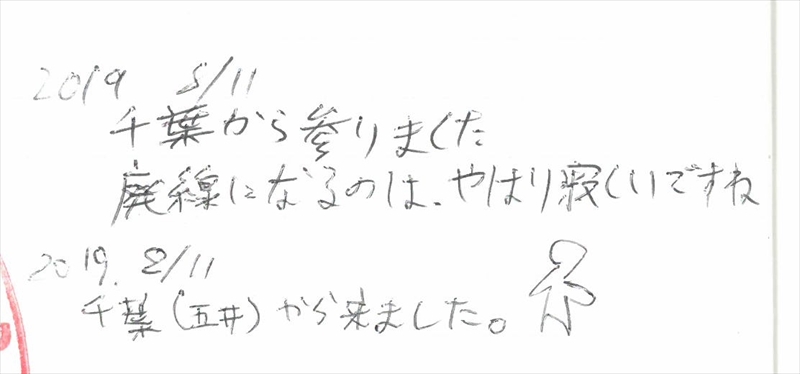 2019 8/11
千葉から参りました
廃線になるのは、やはり寂しいですね
2019. 8/11
千葉(五井)から来ました。